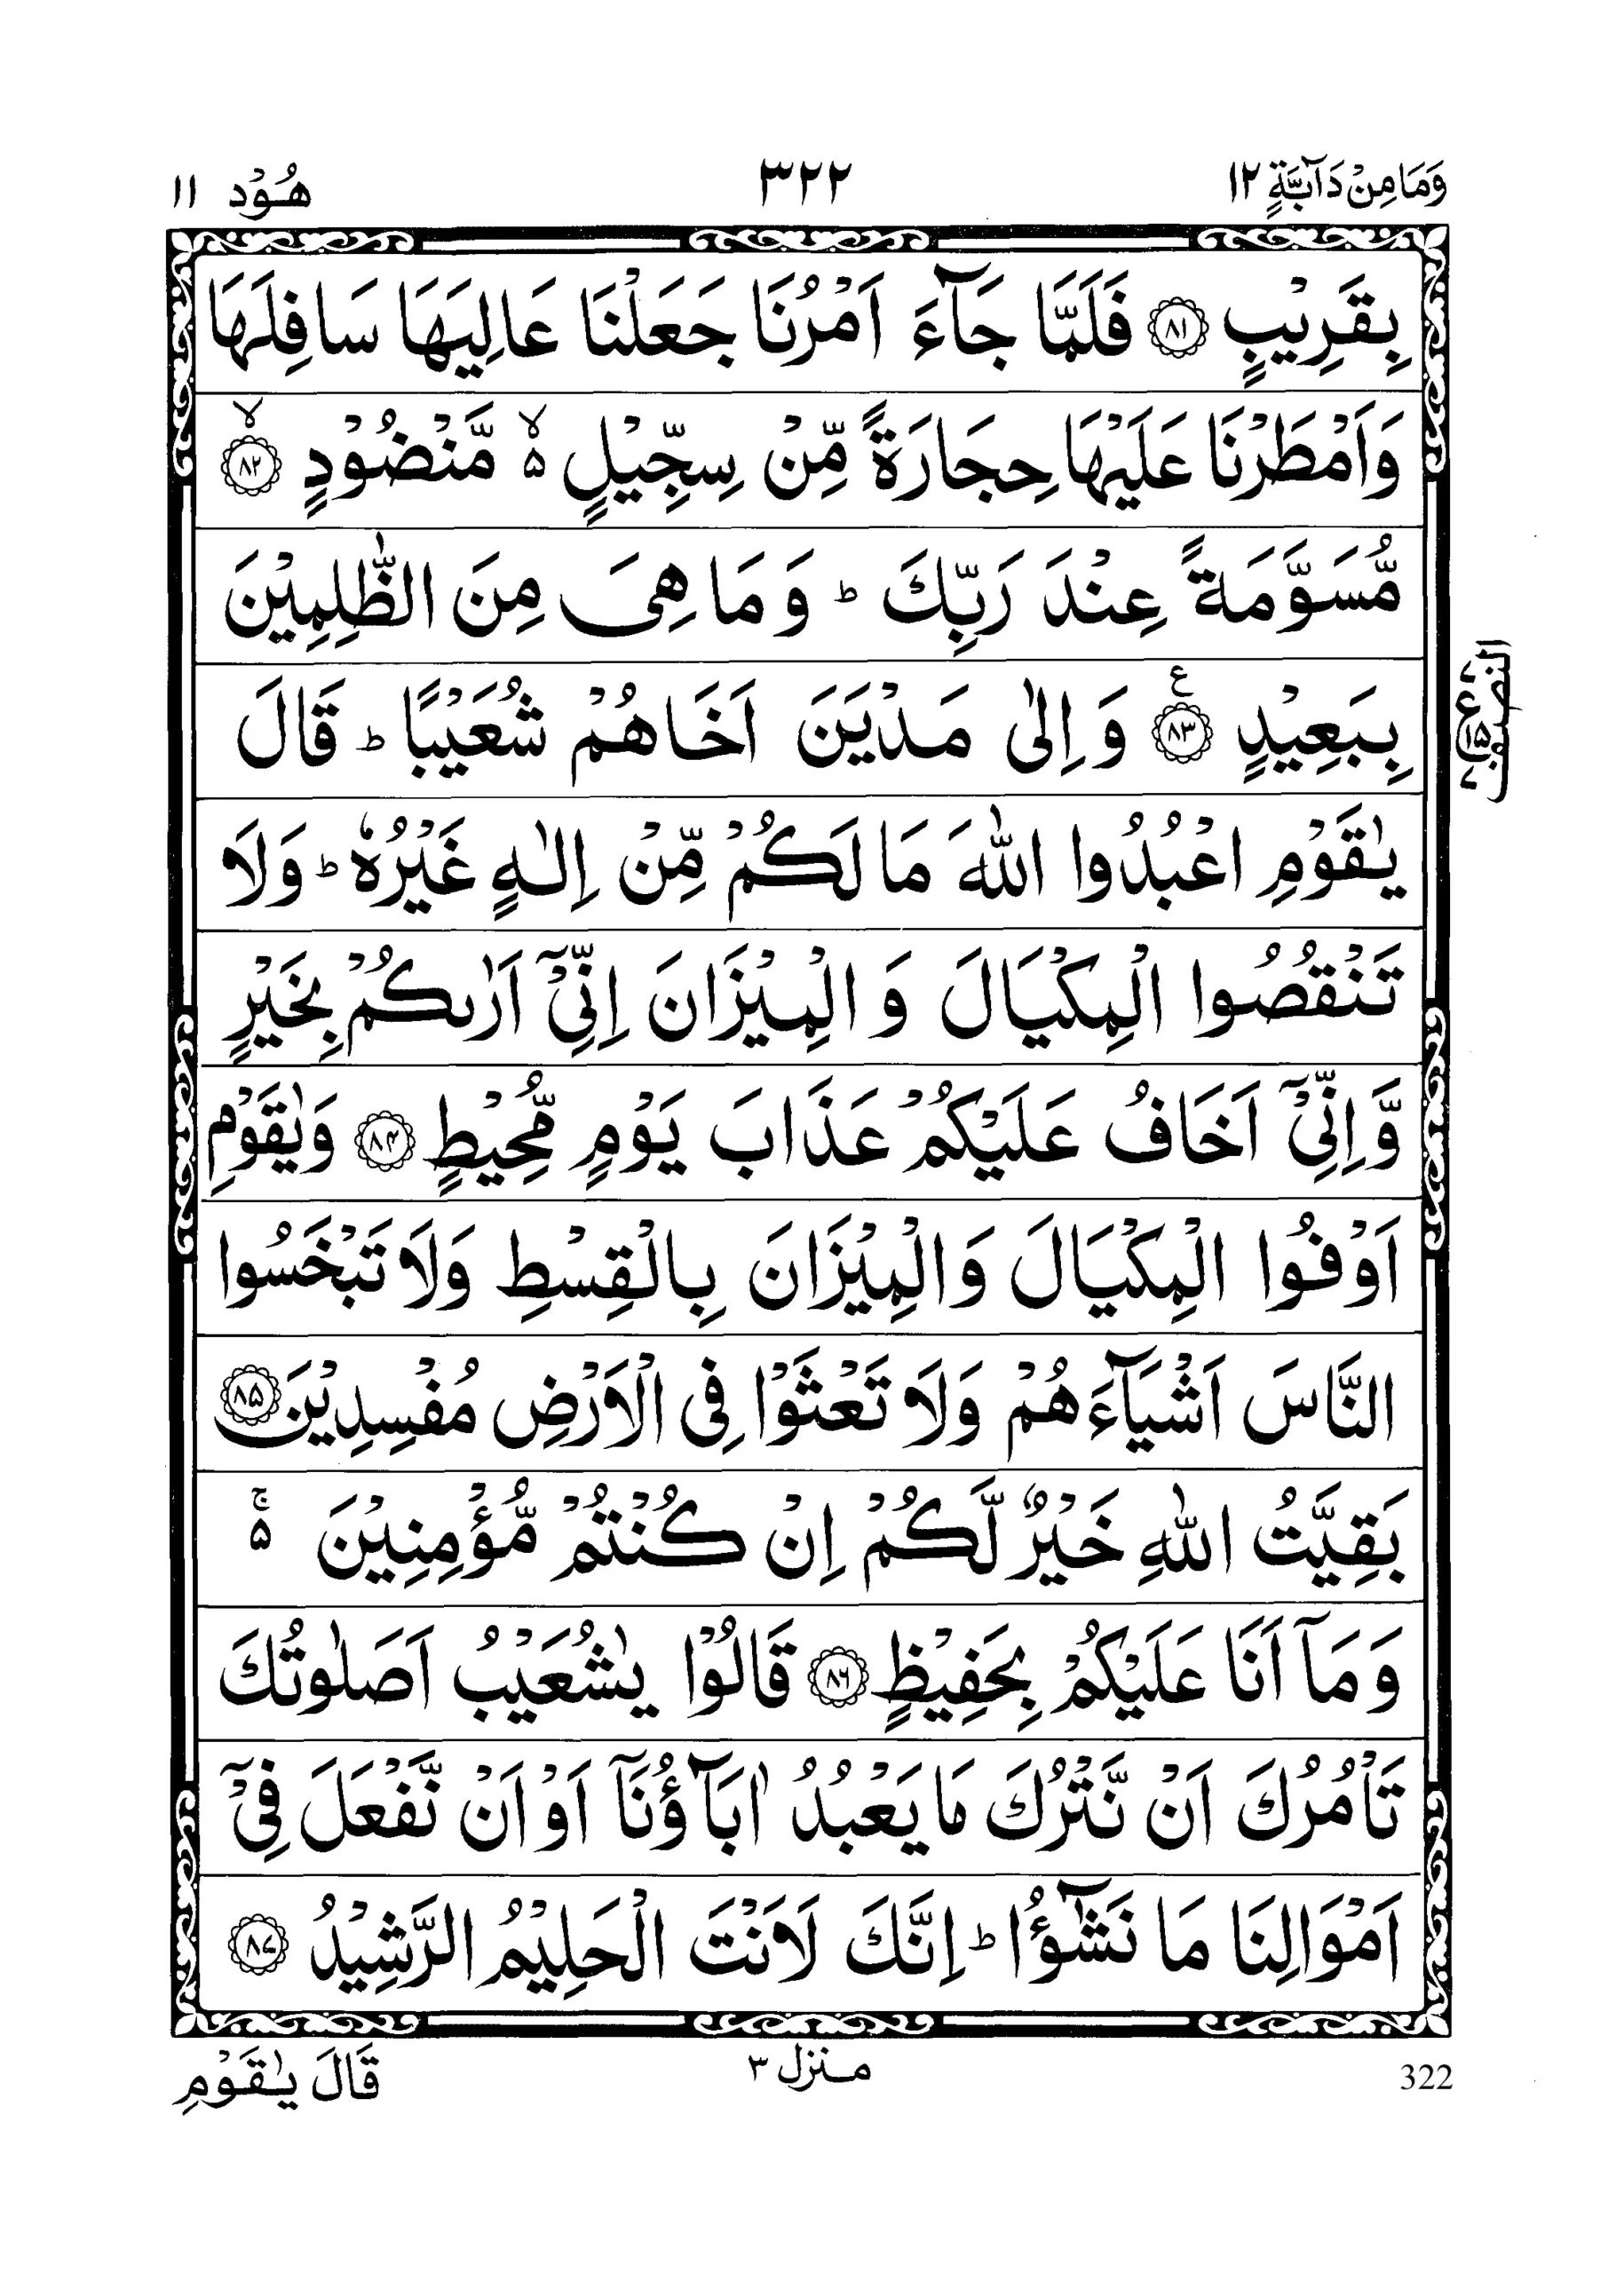 وَمَا مِنْ دَآبَّةٍ ١٢
٣٢٢
هُوْد ١١
بِقَرِيْبٍ ﴿٨١﴾ فَلَمَّا جَآءَ اَمْرُنَا جَعَلْنَا عَالِيَهَا سَافِلَهَا
وَاَمْطَرْنَا عَلَيْهَا حِجَارَةً مِّنْ سِجِّيْلٍ ۙ۵ مَّنْضُوْدٍ ۙ﴿٨٢﴾
مُّسَوَّمَةً عِنْدَ رَبِّكَ ؕ وَ مَا هِىَ مِنَ الظّٰلِمِيْنَ
بِبَعِيْدٍ ﴿٨٣﴾ ع وَ اِلٰى مَدْيَنَ اَخَاهُمْ شُعَيْبًا ؕ قَالَ
يٰقَوْمِ اعْبُدُوا اللّٰهَ مَا لَكُمْ مِّنْ اِلٰهٍ غَيْرُهٗ ؕ وَلَا
تَنْقُصُوا الْمِكْيَالَ وَ الْمِيْزَانَ اِنِّىْۤ اَرٰىكُمْ بِخَيْرٍ
وَّ اِنِّىْۤ اَخَافُ عَلَيْكُمْ عَذَابَ يَوْمٍ مُّحِيْطٍ ﴿٨٤﴾ وَيٰقَوْمِ
اَوْفُوا الْمِكْيَالَ وَالْمِيْزَانَ بِالْقِسْطِ وَلَا تَبْخَسُوا
النَّاسَ اَشْيَآءَهُمْ وَلَا تَعْثَوْا فِى الْاَرْضِ مُفْسِدِيْنَ ﴿٨٥﴾
بَقِيَّتُ اللّٰهِ خَيْرٌ لَّكُمْ اِنْ كُنْتُمْ مُّؤْمِنِيْنَ ۚ۵
وَ مَاۤ اَنَا عَلَيْكُمْ بِحَفِيْظٍ ﴿٨٦﴾ قَالُوْا يٰشُعَيْبُ اَصَلٰوتُكَ
تَاْمُرُكَ اَنْ نَّتْرُكَ مَا يَعْبُدُ اٰبَآؤُنَاۤ اَوْ اَنْ نَّفْعَلَ فِىْۤ
اَمْوَالِنَا مَا نَشٰٓؤُا ؕ اِنَّكَ لَاَنْتَ الْحَلِيْمُ الرَّشِيْدُ ﴿٨٧﴾
النصف
ع ١٥
قَالَ يٰقَوْمِ
منزل ٣
322